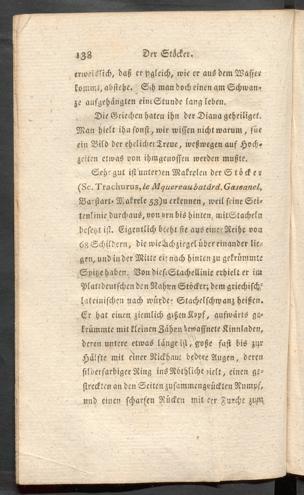 138 Der Stöcker.
erweislich, daß er ogleich, wie er aus dem Wasser
kommt, abstehe. Sh man doch einen am Schwan-
ze aufgehängten eine Stunde lang leben.
Die Griechen haten ihn der Diana geheiliget.
Man hielt ihn sonst, wir wissen nicht warum, für
ein Bild der ehelicher Treue, weßwegen auf Hoch-
zeiten etwas von ihm genossen werden mußte.
Sehr gut ist unter den Makrelen der Stöcker
(Sc. Trachurus, le Maquereau batârd. Gascanel,
Bastart-Makrele 53) zu erkennen, weil seine Sei-
tenlinie durchaus, von vorn bis hinten, mit Stacheln
besetzt ist. Eigentlich bsteht sie aus einer Reihe von
68 Schildern, die wie Dachziegel über einander lie-
gen, und in der Mitte eine nach hinten zu gekrümmte
Spitze haben. Von dieser Stachellinie erhielt er im
Plattdeutschen den Nahmen Stöcker; dem griechisch-
lateinischen nach würde er Stachelschwanz heißen.
Er hat einen ziemlich großen Kopf, aufwärts ge-
krümmte mit kleinen Zähnen bewaffnete Kinnladen,
deren untere etwas länger ist, große fast bis zur
Hälfte mit einer Nickhaut bedeckte Augen, deren
silberfarbiger Ring ins Röthliche spielt, einen ge-
streckten an den Seiten zusammengedrückten Rumpf,
und einen scharfen Rücken mit der Furche zum